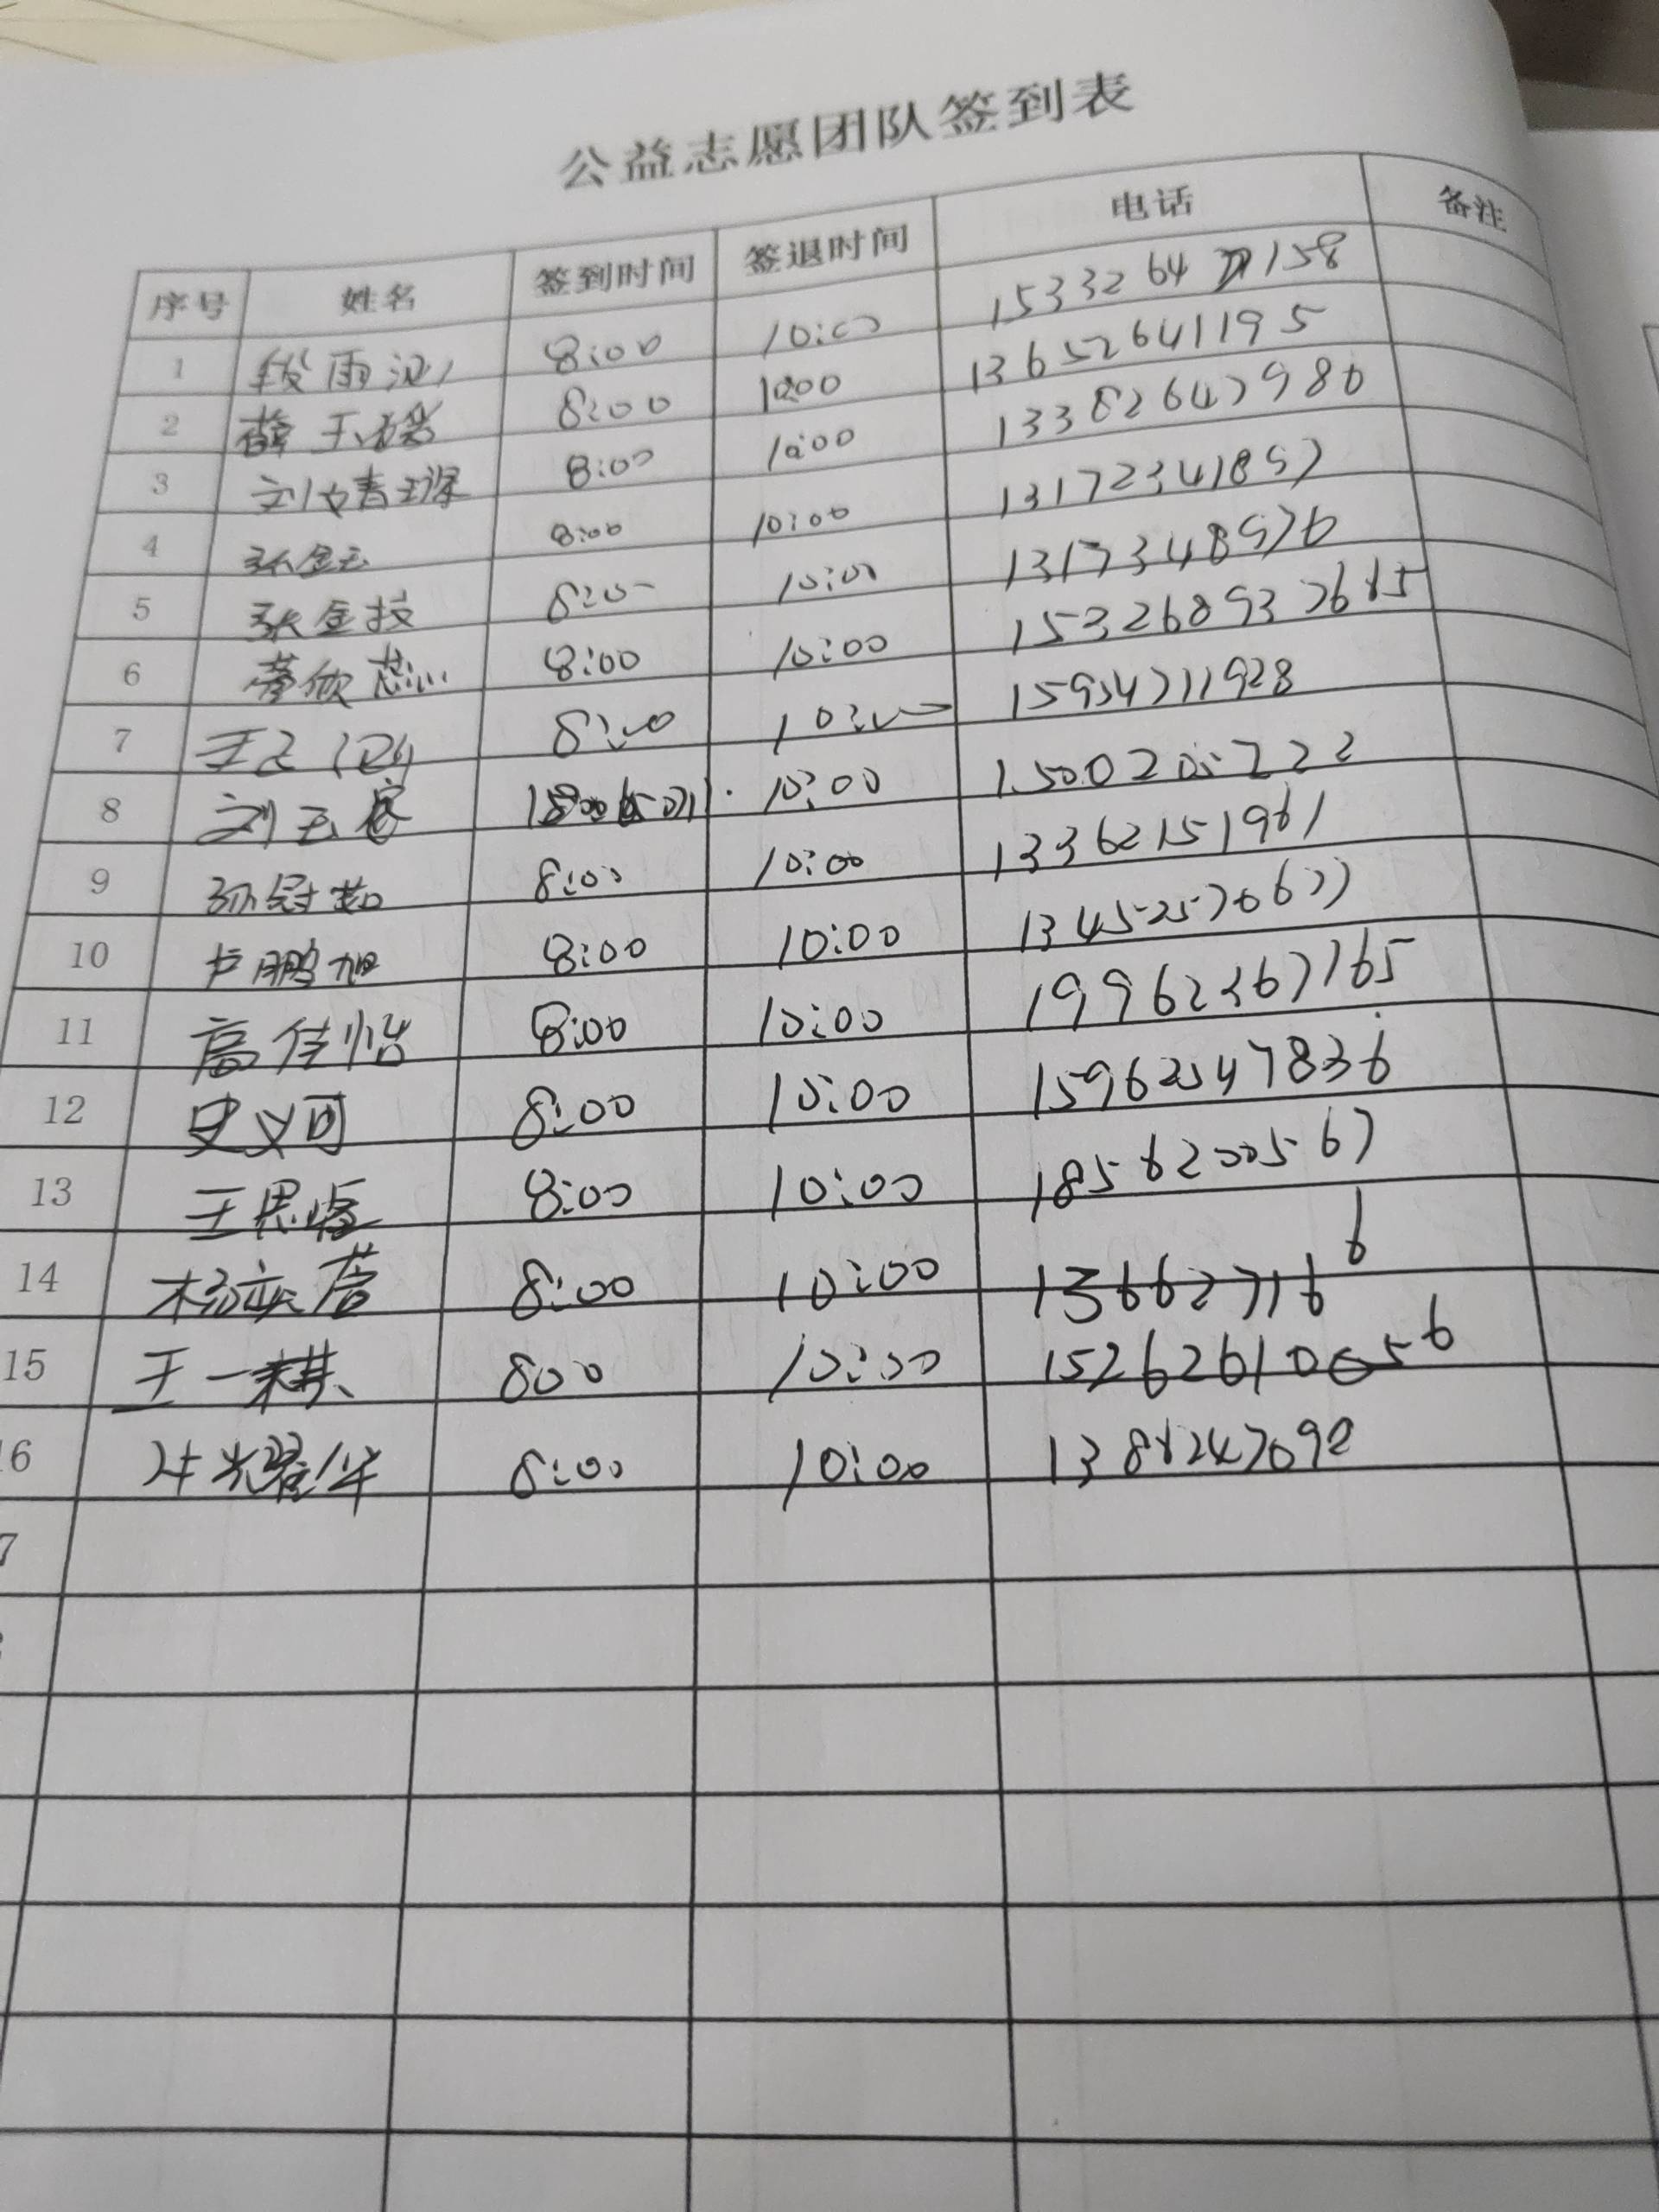 公益志愿团队签到表
序号 姓名 签到时间 签退时间 电话 备注
1 段雨 8:00 10:00 1533264 158
2 薛玉 8:00 10:00 13652641195
3 刘 8:00 10:00 13382647980
4 孙金玉 8:00 10:00 13172341897
5 张金 8:00 10:00 1317348976
6 欣蕊 8:00 10:00 153268937685
7 王 8:00 10:00 15954711928
8 刘玉 10:00 1500205222
9 孙冠茹 8:00 10:00 13362151961
10 卢鹏旭 8:00 10:00 13452570677
11 高佳怡 8:00 10:00 19962367765
12 史义可 8:00 10:00 15962547836
13 王思睿 8:00 10:00 1856200567
14 杨 8:00 10:00 1366277166
15 王一棋 800 10:00 152626100656
16 耀华 8:00 10:00 1388247090
7